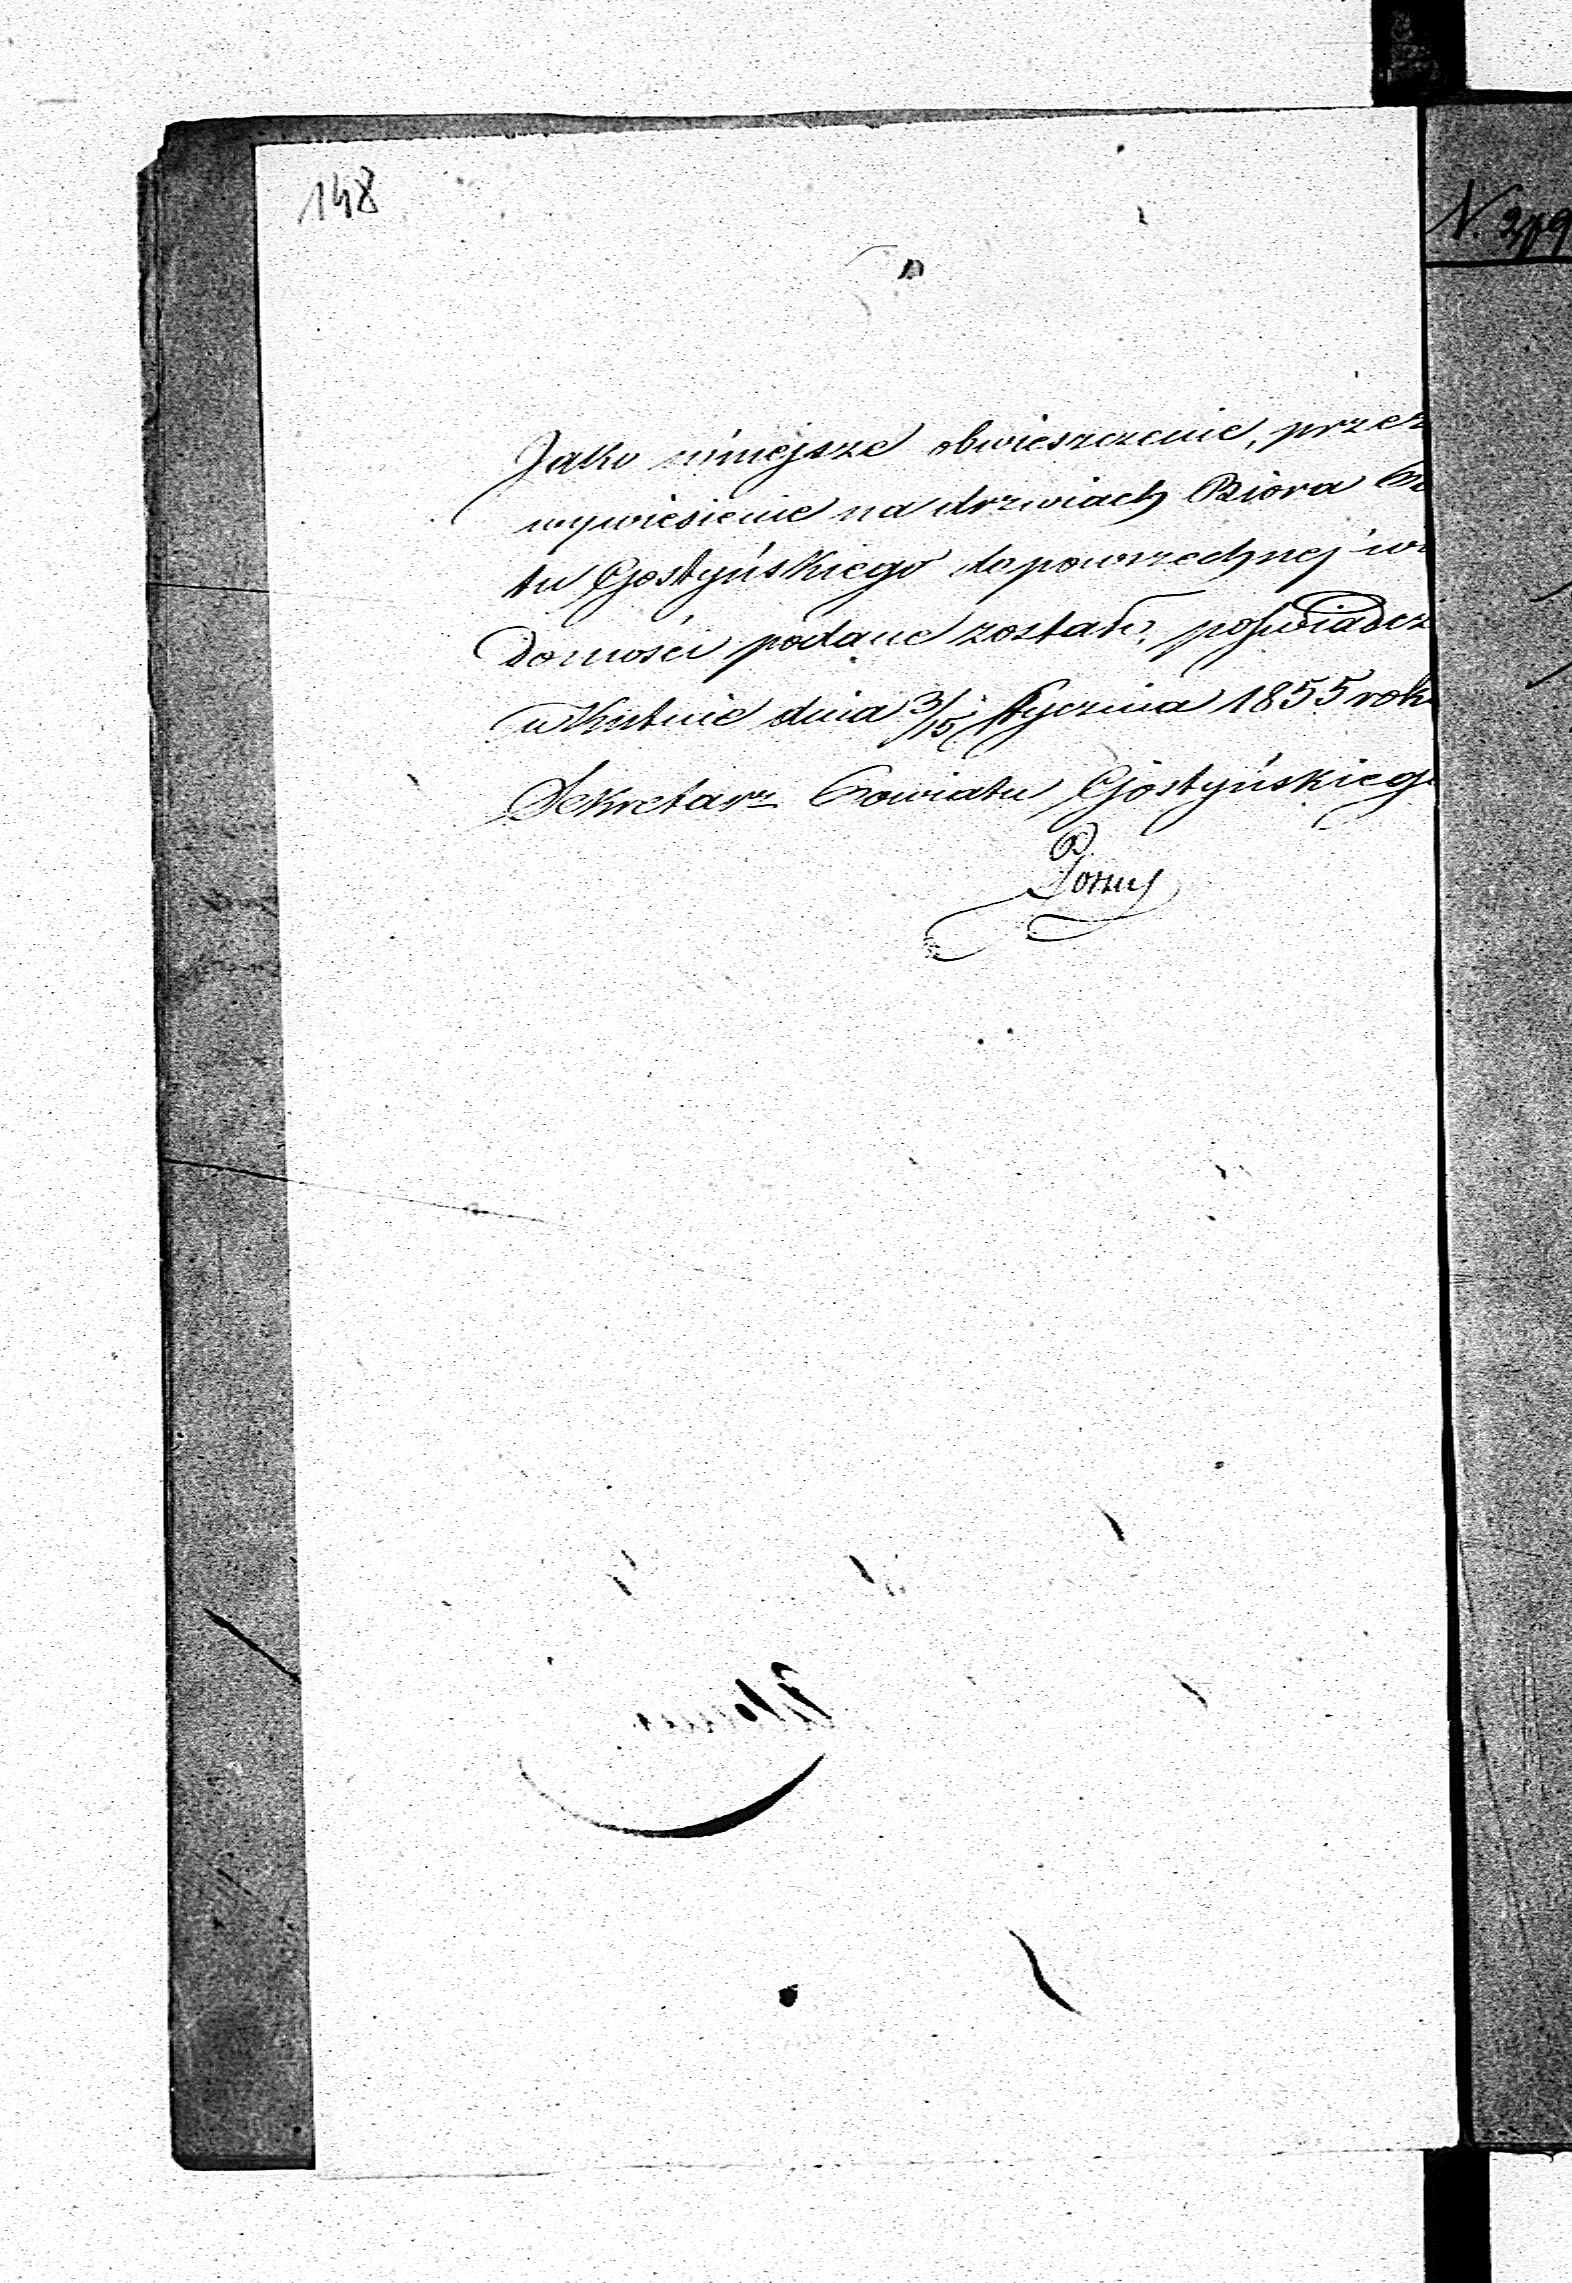 148
Jako niniejsze obwieszczenie, przez
wywieszenie na drzwiach Bióra
tu Gostyńskiego do powszechnej wi
domości podane zostało, poświadcz
w Kutnie dnia 3/15 Stycznia 1855 rok
Sekretarz Powiatu Gostyńskieg